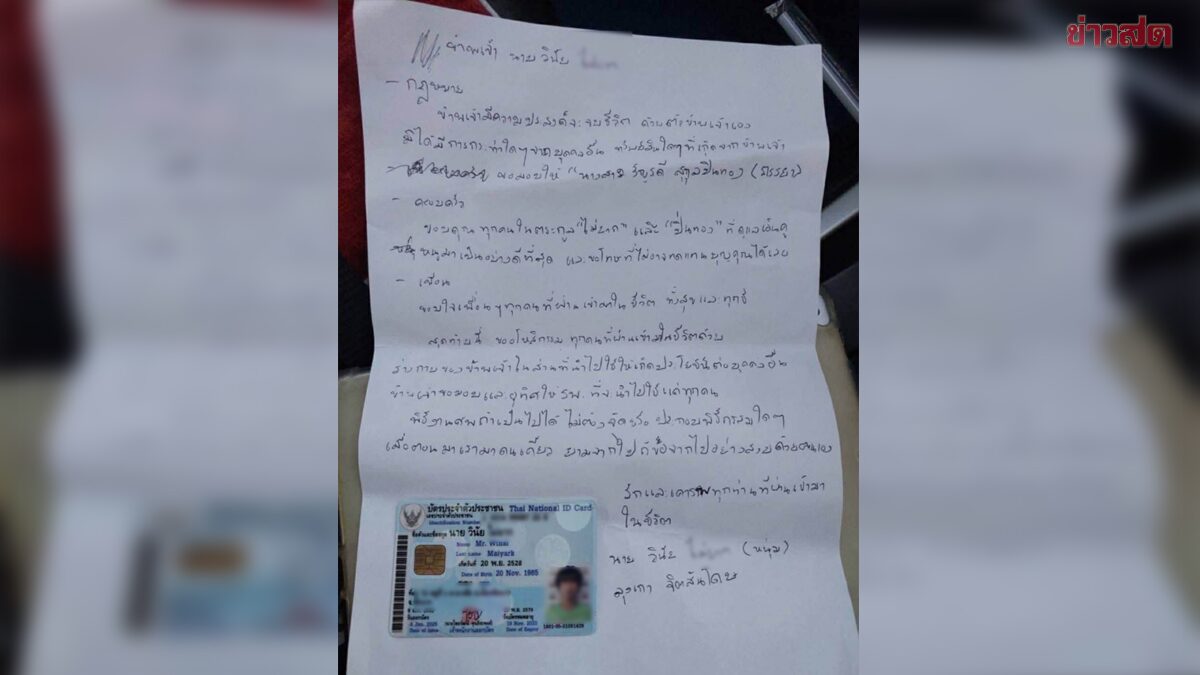 ข่าวสด
ข้าพเจ้า นาย วินัย
- กฎหมาย
ข้าพเจ้ามีความประสงค์จะจบชีวิต ด้วยตัวข้าพเจ้าเอง
มิได้มีการกระทำใดๆจากบุคคลอื่น ทรัพย์สินใดๆที่เกิดจากข้าพเจ้า
ขอมอบให้ "นางสาว สกุลปิ่นทอง (ภรรยา)
- ครอบครัว
ขอบคุณ ทุกคนในตระกูล "ไม่ยาก" และ "ปิ่นทอง" ที่ดูแลเอ็นดู
หนูมาเป็นอย่างดีที่สุด และขอโทษที่ไม่อาจทดแทนบุญคุณได้เลย
- เพื่อน
ขอบใจเพื่อนๆทุกคนที่ผ่านเข้ามาในชีวิต ทั้งสุขและทุกข์
สุดท้ายนี้ ขออโหสิกรรม ทุกคนที่ผ่านเข้ามาในชีวิตด้วย
ร่างกายของข้าพเจ้าในส่วนที่นำไปใช้ให้เกิดประโยชน์ต่อบุคคลอื่น
ข้าพเจ้าขอมอบและอุทิศให้ รพ. ที่จะนำไปใช้แด่ทุกคน
พิธีงานศพถ้าเป็นไปได้ ไม่ต้องจัดหรือ ประกอบพิธีกรรมใดๆ
เมื่อตอนมาเรามาคนเดียว ยามจากไปก็ขอจากไปอย่างสงบด้วยตนเอง
รักและเคารพทุกท่านที่ผ่านเข้ามา
ในชีวิต
นาย วินัย (หนุ่ม)
บัตรประจำตัวประชาชน Thai National ID Card
เลขประจำตัวประชาชน
Identification Number
ชื่อตัวและชื่อสกุล นาย วินัย
Name Mr. Winai
Last name Maiyark
เกิดวันที่ 20 พ.ย. 2528
Date of Birth 20 Nov. 1985
วันออกบัตร
Date of Issue
เจ้าพนักงานออกบัตร
วันบัตรหมดอายุ
Date of Expiry